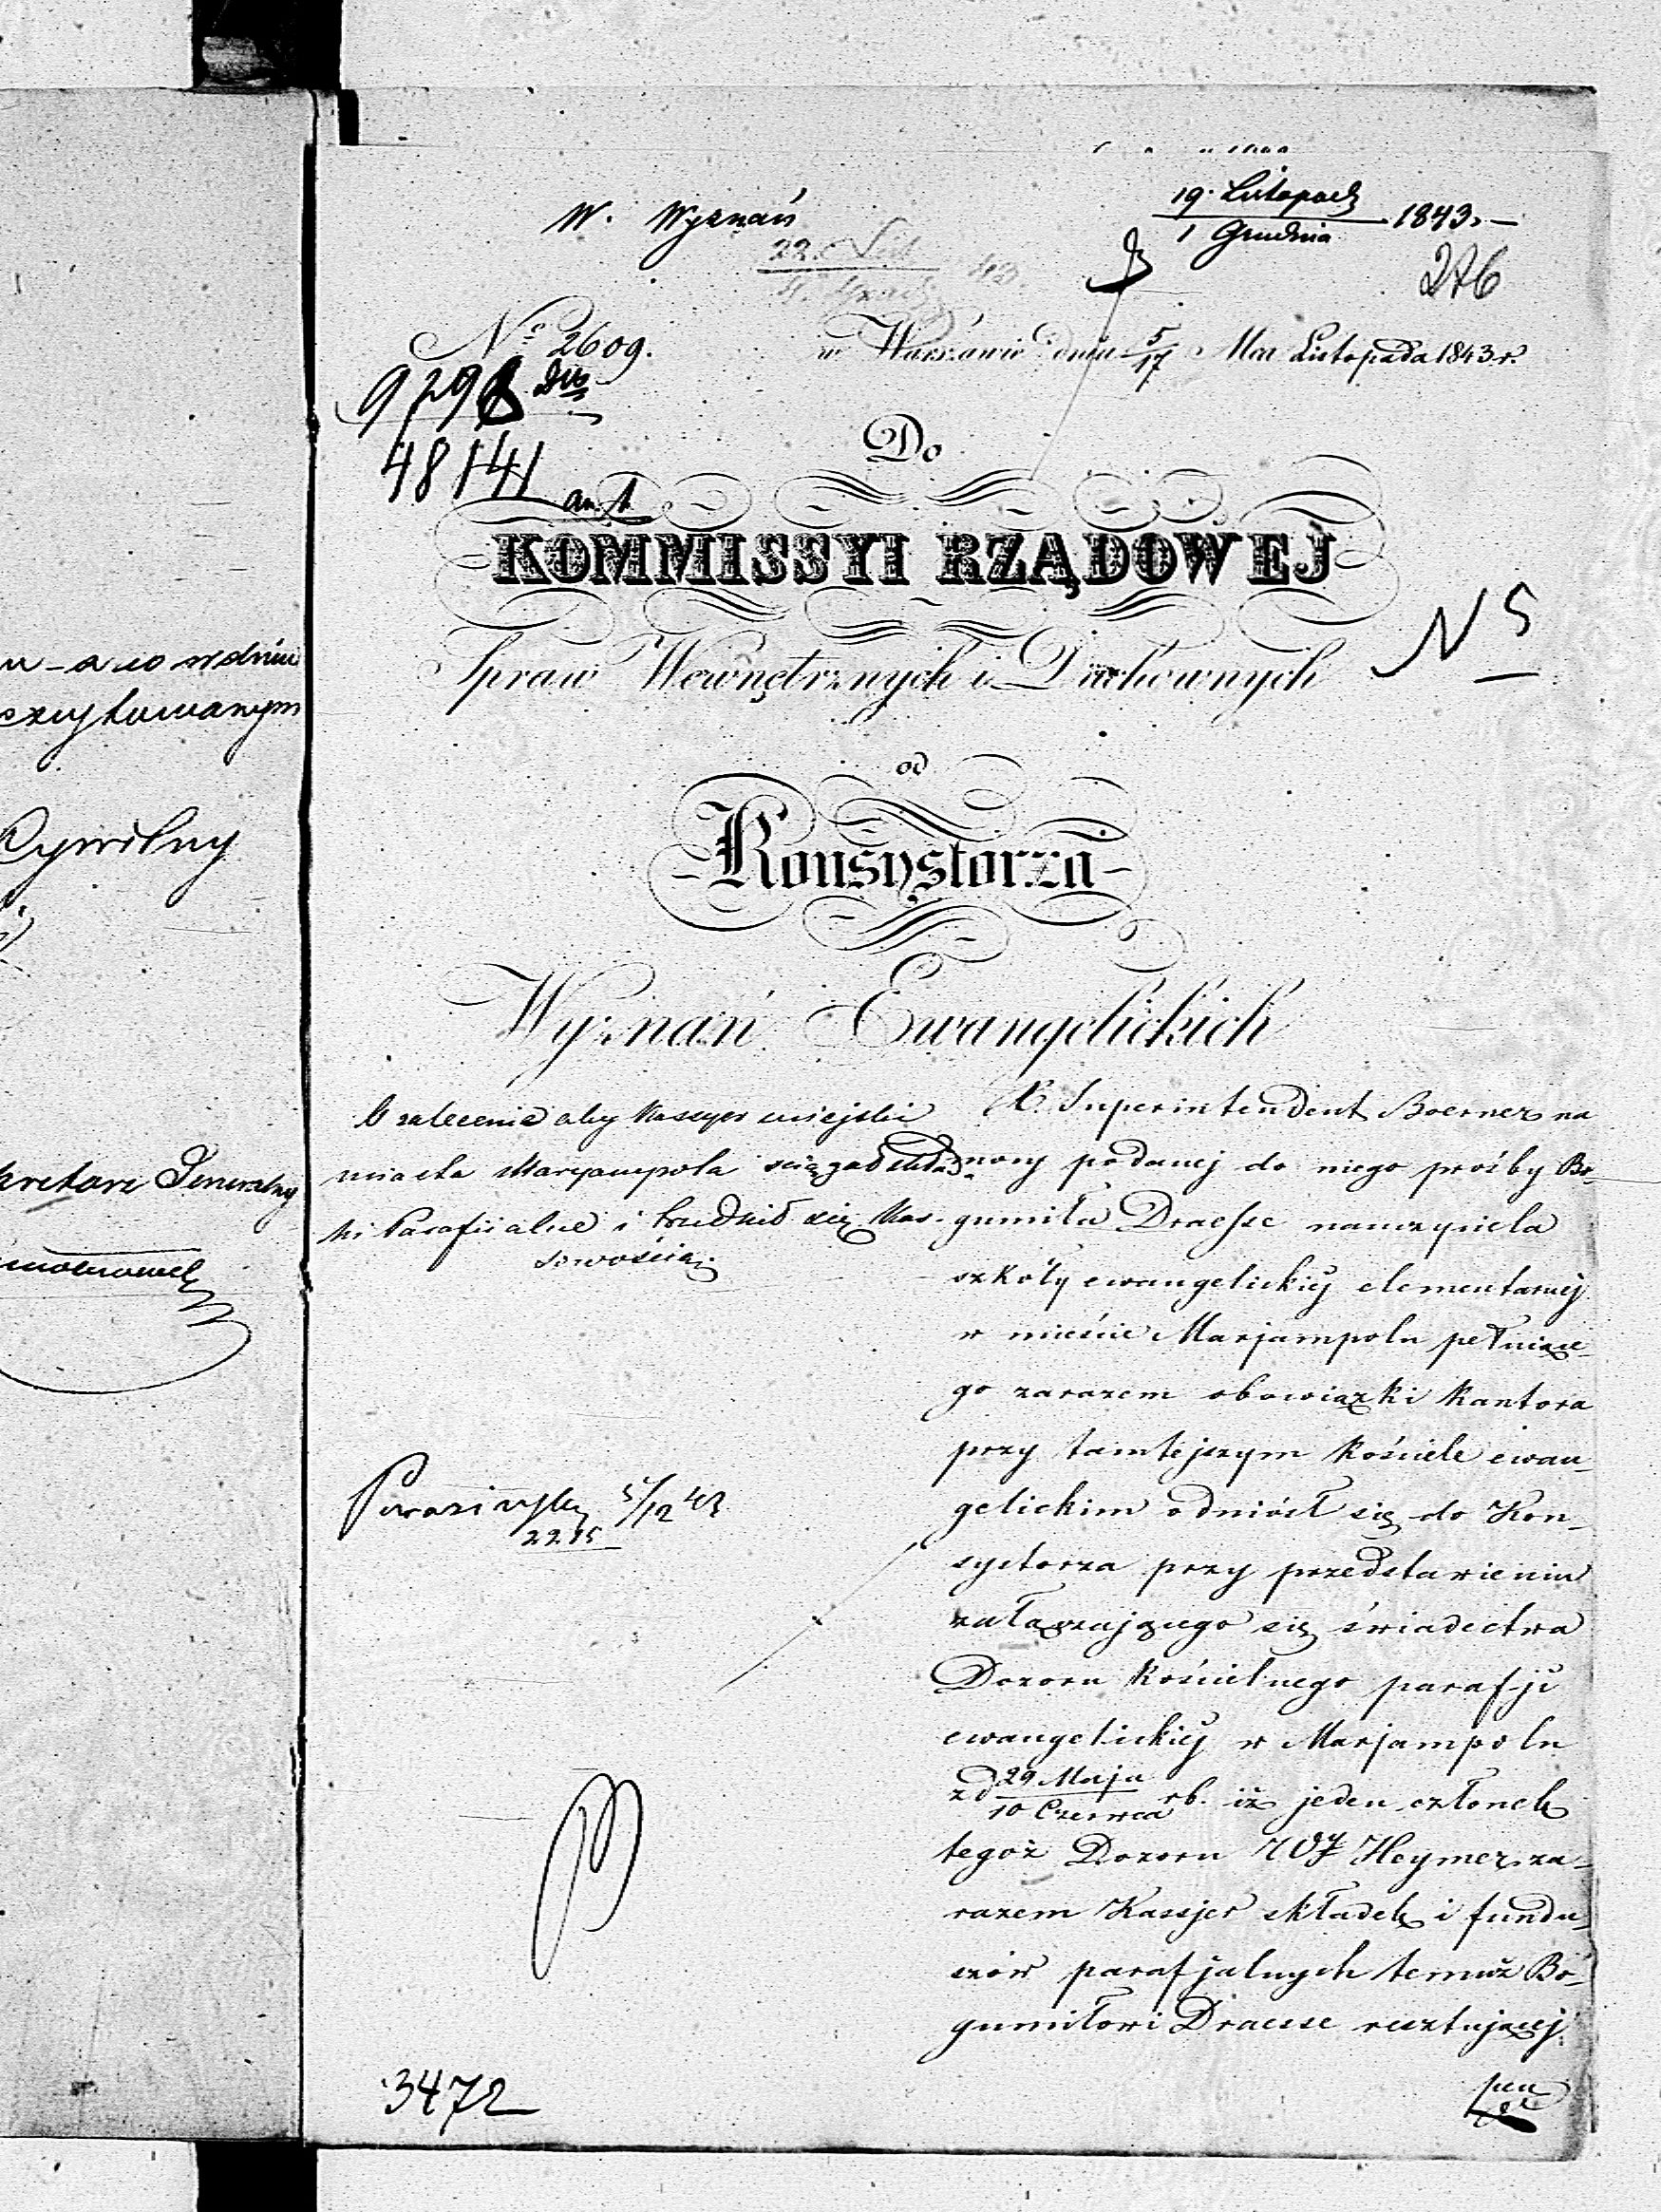 W. Wyznań
19. Listopad
1 Grudnia 1843.
276
22. List
No 2609.
w Warszawie dnia 5/17 Mca Listopada 1843 r.
48141
Do
KOMMISSYI RZĄDOWEJ
Spraw Wewnętrznych i Duchownych
N 5
od
Konsystorza
Wyznań Ewangelickich
O zalecenie aby Kassyer miejski
miasta Maryampola ściągał skład-
ki Parafialne i trudnił się Kas-
sowością.
X. Superintendent Boerner na
mocy podanej do niego prośby Bo-
gumiła Draesse nauczyciela
szkoły ewangelickiej elementarnej
w mieście Marjampolu pełniące-
go zarazem obowiązki Kantora
przy tamtejszym Kościele ewan-
gelickim odniósł się do Kon-
systorza przy przedstawieniu
załączającego się świadectwa
Dozoru Kościelnego parafji
ewangelickiej w Marjampolu
z d 29 Maja
10 Czerwca rb. iż jeden członek
tegoż Dozoru Heymer za-
razem Kassjer składek i fundu-
szów parafjalnych temuż Bo-
gumiłowi Draesse resztującej
5/12 43
2215
3472
u - a co w dniu
czytowanym
Cywilny
kretarz Generalny